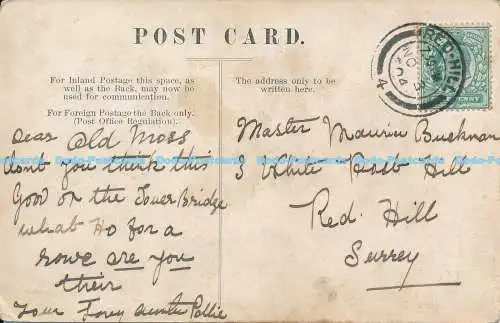 POST CARD.
For Inland Postage this space, as
well as the Back, may now be
used for communication.
For Foreign Postage the Back only.
(Post Office Regulation).
The address only to be
written here.
RED-HILL
NO 3
04
PENNY
Dear Old Moss
dont you think this
Good on the Tower Bridge
what Ho for a
rowe are you
their
Your Auntie Pollie
Master Maurice Buckman
3 White Post Hill
Red Hill
Surrey